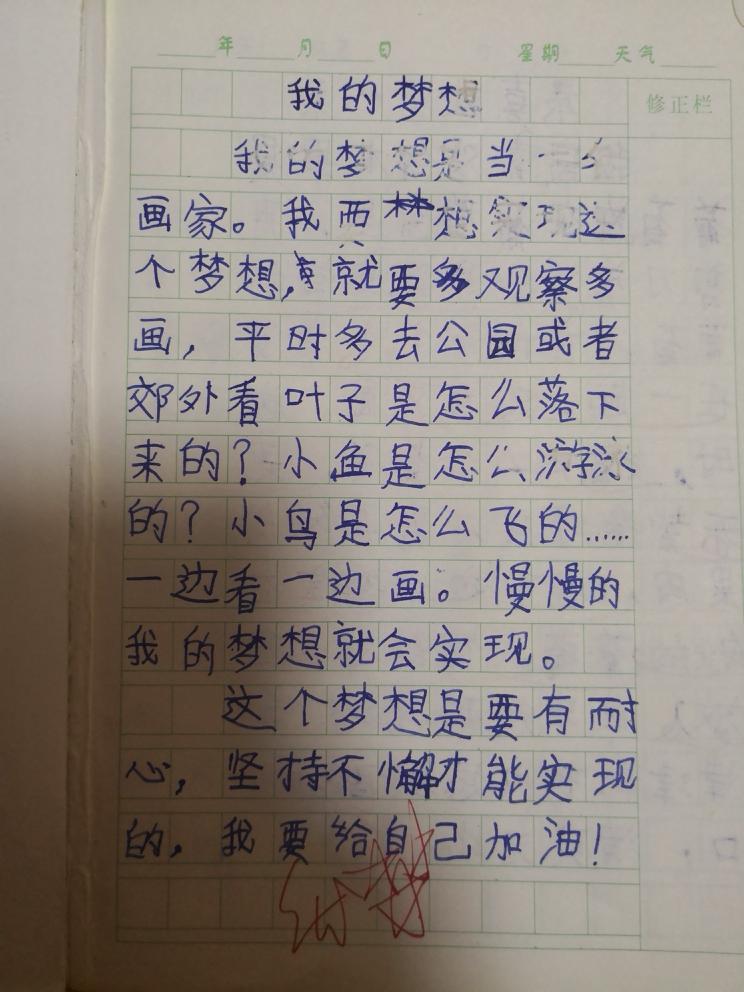 年 月 日 星期 天气
修正栏
我的梦想
我的梦想是当一个
画家。我要想实现这
个梦想,就要多观察多
画,平时多去公园或者
郊外看叶子是怎么落下
来的?小鱼是怎么游泳
的?小鸟是怎么飞的……
一边看一边画。慢慢的
我的梦想就会实现。
这个梦想是要有耐
心,坚持不懈才能实现
的,我要给自己加油!